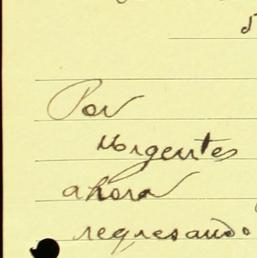 Por
Urgentes
ahora
regresando